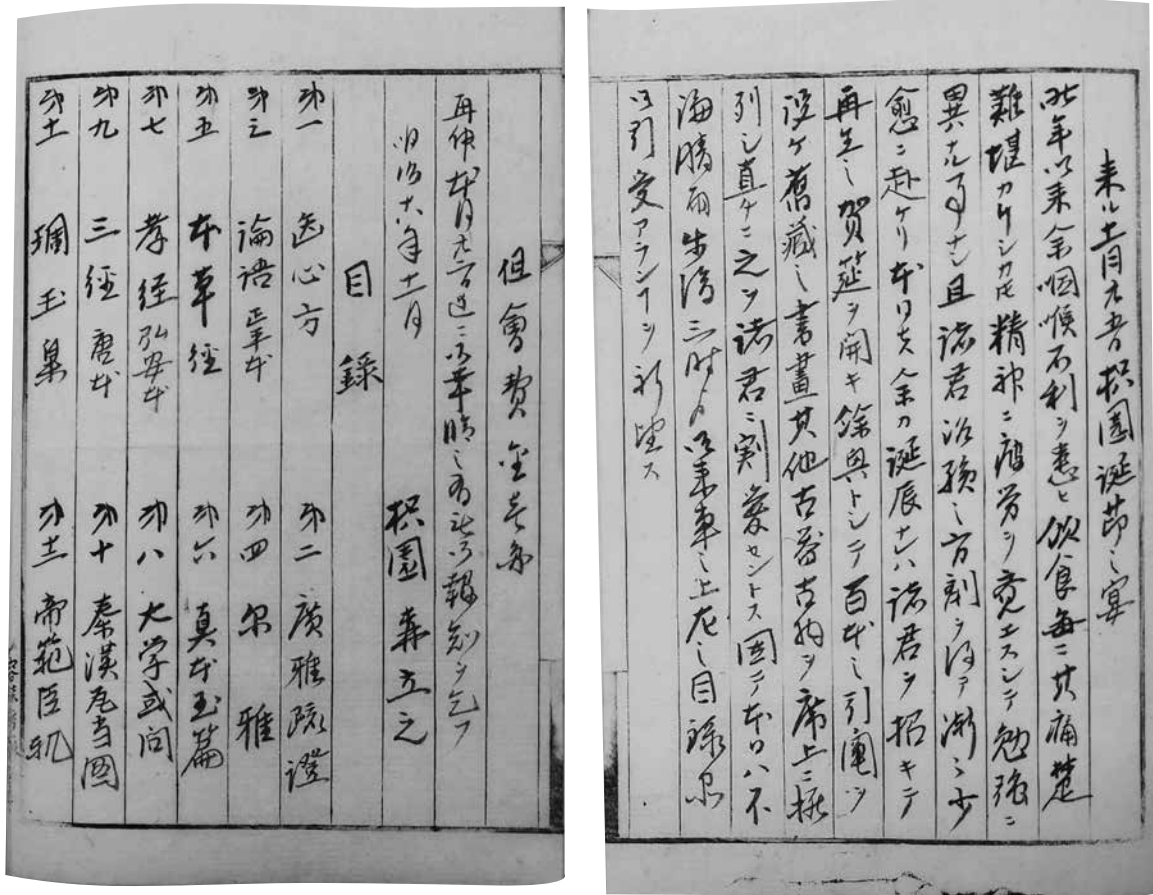 来ル十一月廿五日枳園誕節之宴
昨年以来余咽喉不利ヲ患ヒ飲食毎ニ其痛楚
難堪カリシカ𪜈精神ニ疲労ヲ覚エスシテ勉強ニ
異ナル了ナシ且諸君治験之方剤ヲ得テ漸々少
愈ニ赴ケリ本日ハ余カ誕辰ナレハ諸君ヲ招キテ
再生之賀莚ヲ開キ餘興トシテ百本之引圖ヲ
設ケ舊蔵之書畫其他古器古物ヲ席上ニ排
列シ直ケニ之ヲ諸君ニ割愛セントス因テ本日ハ不
論晴雨午後三時ヨリ御来車之上左之目録
御引受アランヿヲ祈望ス
但會費金
再伸本月廿 日迄ニ御来臨之有無御報知ヲ乞フ
明治十六年十一月
枳園 森立之
目錄
第一 医心方 第二 廣雅疏證
第三 論語 第四 尓雅
第五 本草經 第六 真本玉篇
第七 孝経 弘安本 第八 大学或问
第九 三經 唐本 第十 秦漢瓦当圖
第十一 琱玉集 第十二 帝範臣軌